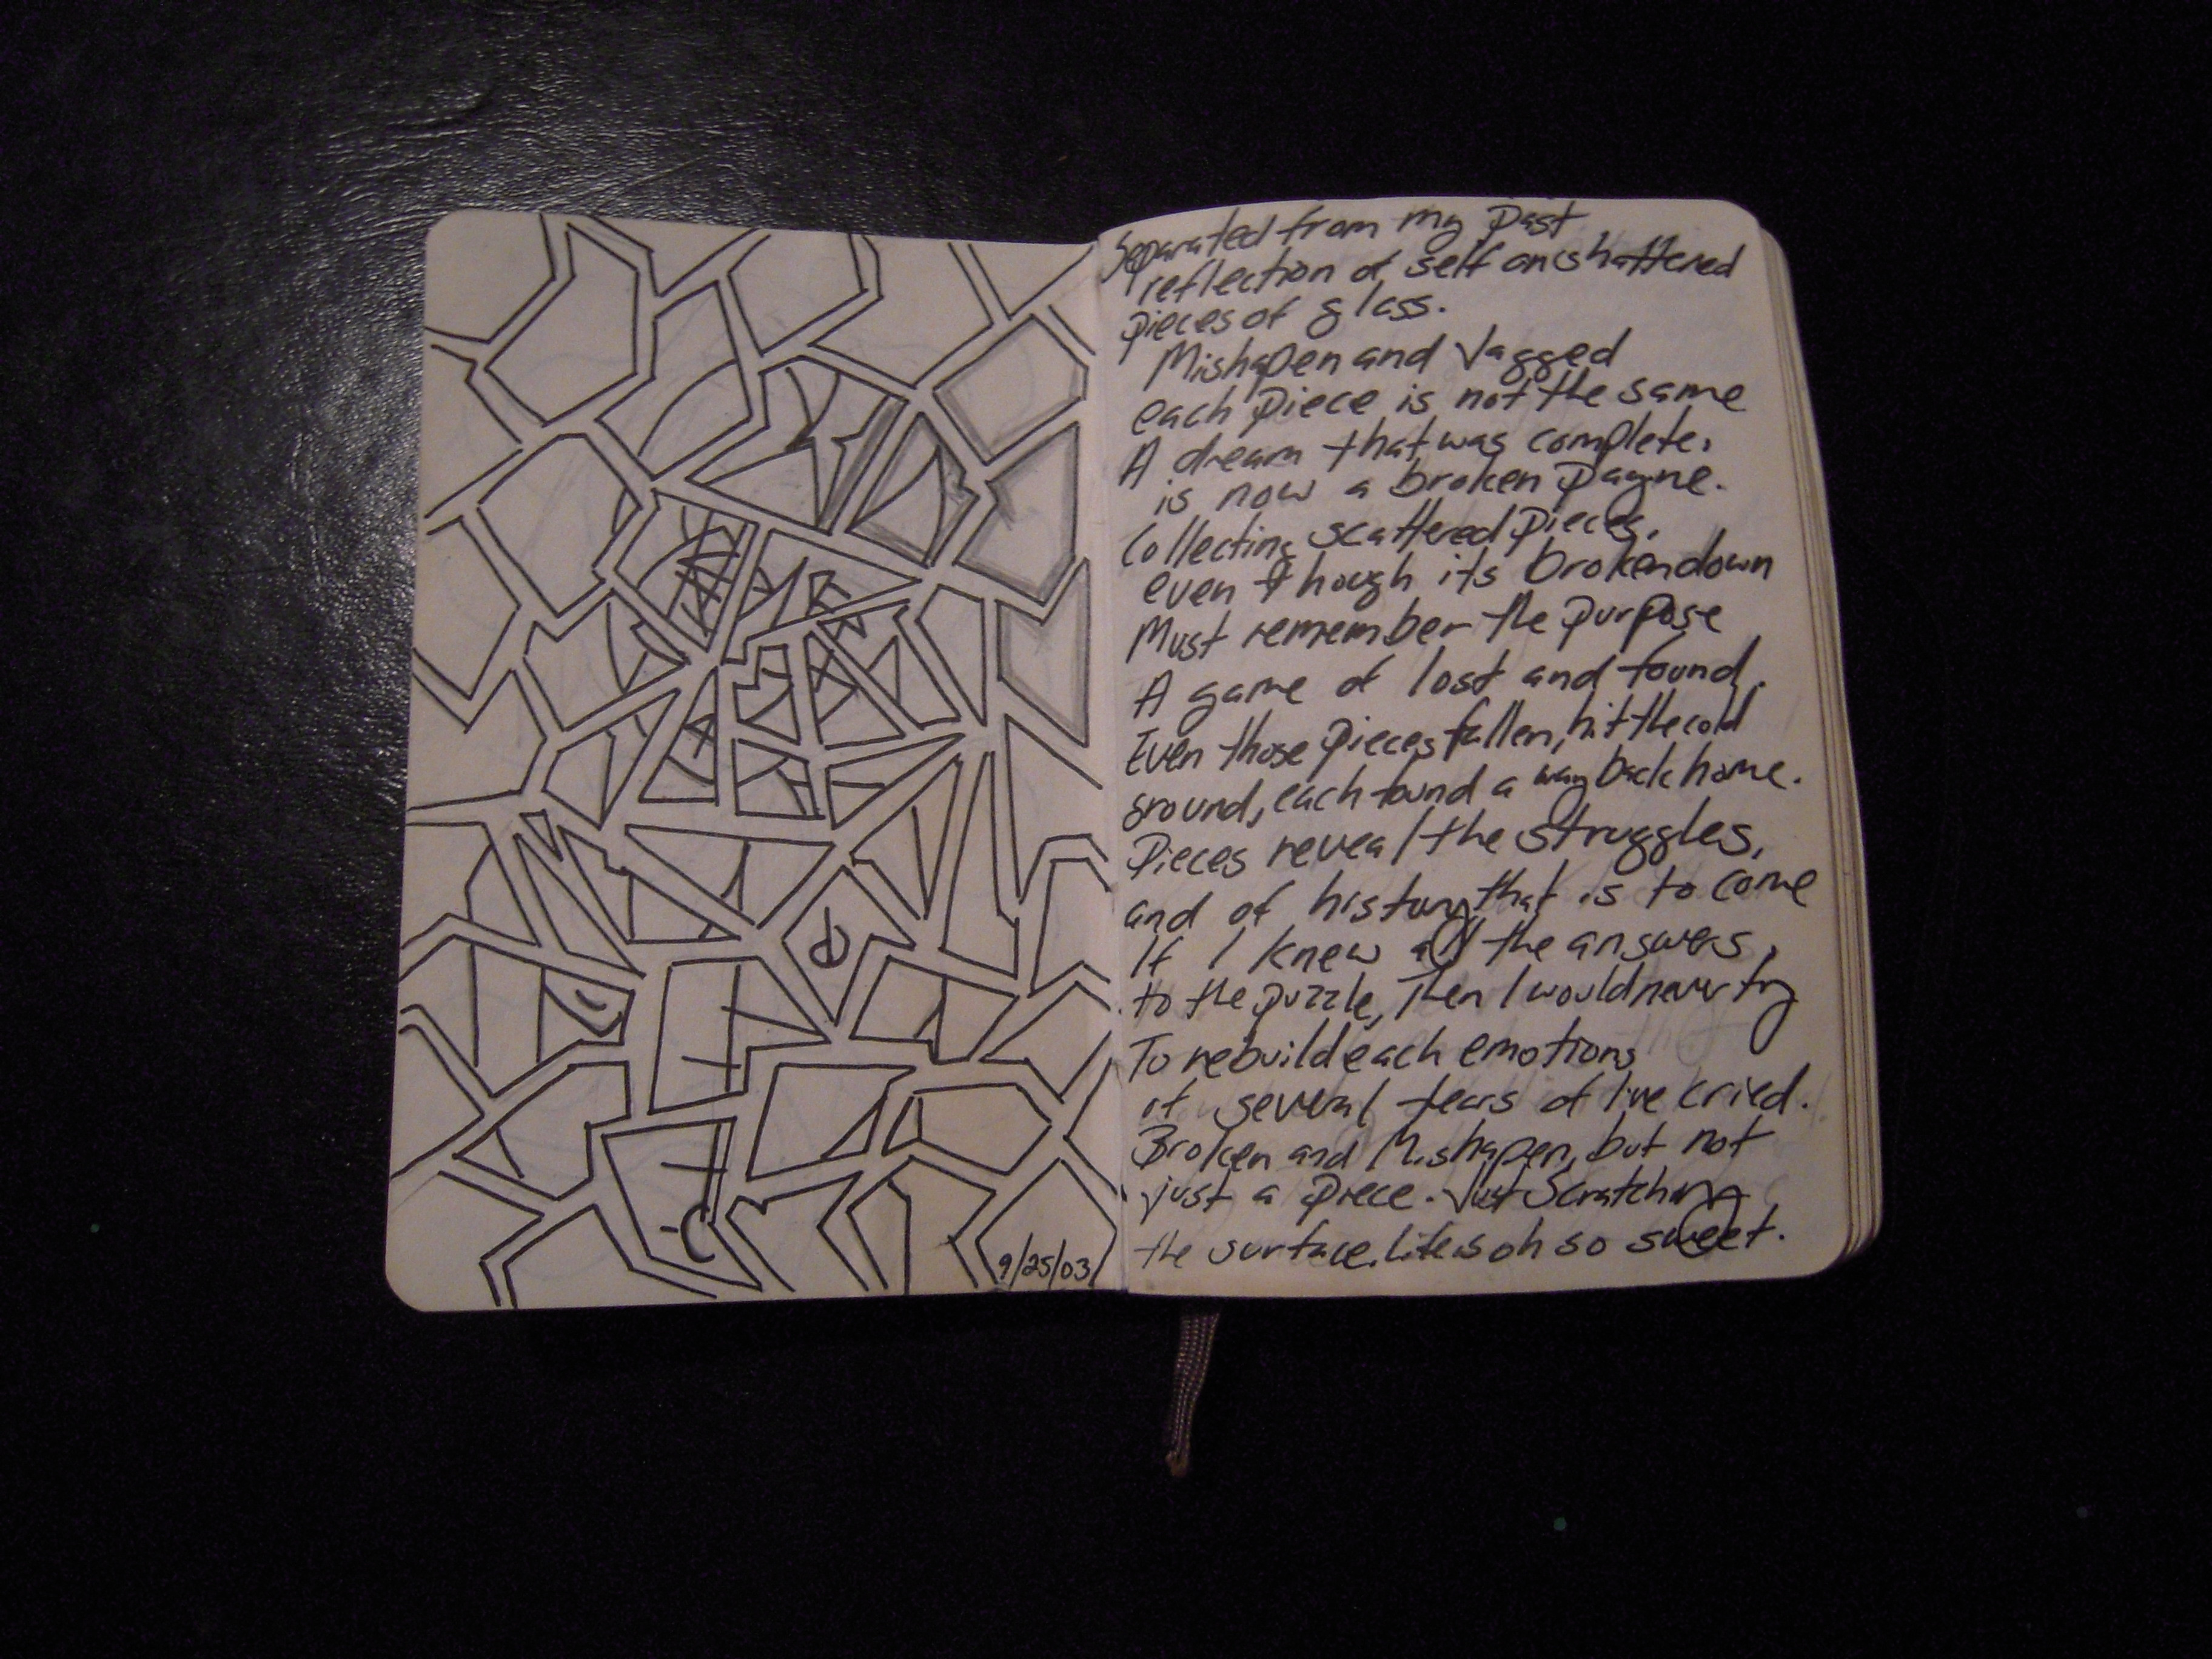 9/25/03
Separated from my past
reflection of self on shattered
pieces of glass.
Mishapen and Jagged
each piece is not the same
A dream that was complete,
is now a broken payne.
Collecting scattered pieces,
even though its broken down
Must remember the purpose
A game of lost and found.
Even those pieces fallen, hit the cold
ground, each found a way back home.
Pieces reveal the struggles,
and of history that is to come
If I knew all the answers,
to the puzzle, Then I would never try
To rebuild each emotions
of several tears of I've cried.
Broken and Mishapen, but not
just a piece. Just Scratching
the surface. Life is oh so sweet.